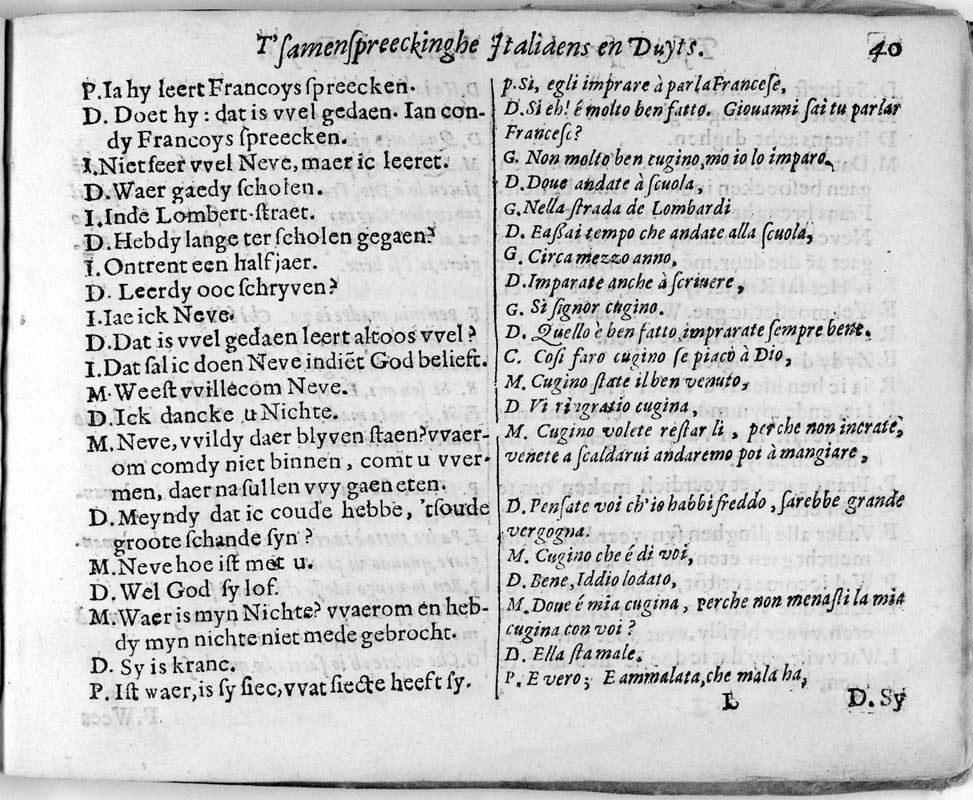 T'ſamenſpreeckinghe Italiaens en Duyts.
40
P. Ia hy leert Francoys ſpreecken.
D. Doet hy: dat is vvel gedaen. Ian con-
dy Francoys ſpreecken.
I. Niet ſeer vvel Neve, maer ic leeret.
D. Waer gaedy ſcholen.
I. Inde Lombert-ſtraet.
D. Hebdy lange ter ſcholen gegaen?
I. Ontrent een half jaer.
D. Leerdy ooc ſchryven?
I. Iae ick Neve.
D. Dat is vvel gedaen leert altoos vvel?
I. Dat ſal ic doen Neve indiēt God belieft.
M. Weeſt vvillecom Neve.
D. Ick dancke u Nichte.
M. Neve, vvildy daer blyven ſtaen? vvaer-
om comdy niet binnen, comt u vver-
men, daer na ſullen vvy gaen eten.
D. Meyndy dat ic coude hebbe, 'tſoude
groote ſchande ſyn?
M. Neve hoe iſt met u.
D. Wel God ſy lof.
M. Waer is myn Nichte? vvaerom en heb-
dy myn nichte niet mede gebrocht.
D. Sy is kranc.
P. Iſt waer, is ſy ſiec, vvat ſiecte heeft ſy.
P. Si, egli imprare à parla Franceſe,
D. Si eh! é molto ben fatto. Giouanni ſai tu parlar
Franceſc?
G. Non molto ben cugino, mo io lo imparo,
D. Doue andate à ſcuola,
G. Nella ſtrada de Lombardi
D. E aßai tempo che andate alla ſcuola,
G. Circa mezzo anno,
D. Imparate anche à ſcriuere,
G. Si ſignor cugino.
D. Quello è ben fatto imprarate ſempre bene.
C. Coſi faro cugino ſe piaco à Dio,
M. Cugino ſtate il ben venuto,
D. Vi ringratio cugina,
M. Cugino volete reſtar li, perche non incrate,
venete a ſcaldarui andaremo poi à mangiare,
D. Penſate voi ch'io habbi freddo, ſarebbe grande
vergogna.
M. Cugino che é di voi,
D. Bene, Iddio lodato,
M. Doue é mia cugina, perche non menaſti la mia
cugina con voi?
D. Ella ſta male.
P. E vero; E ammalata, che mala ha,
L
D. Sy